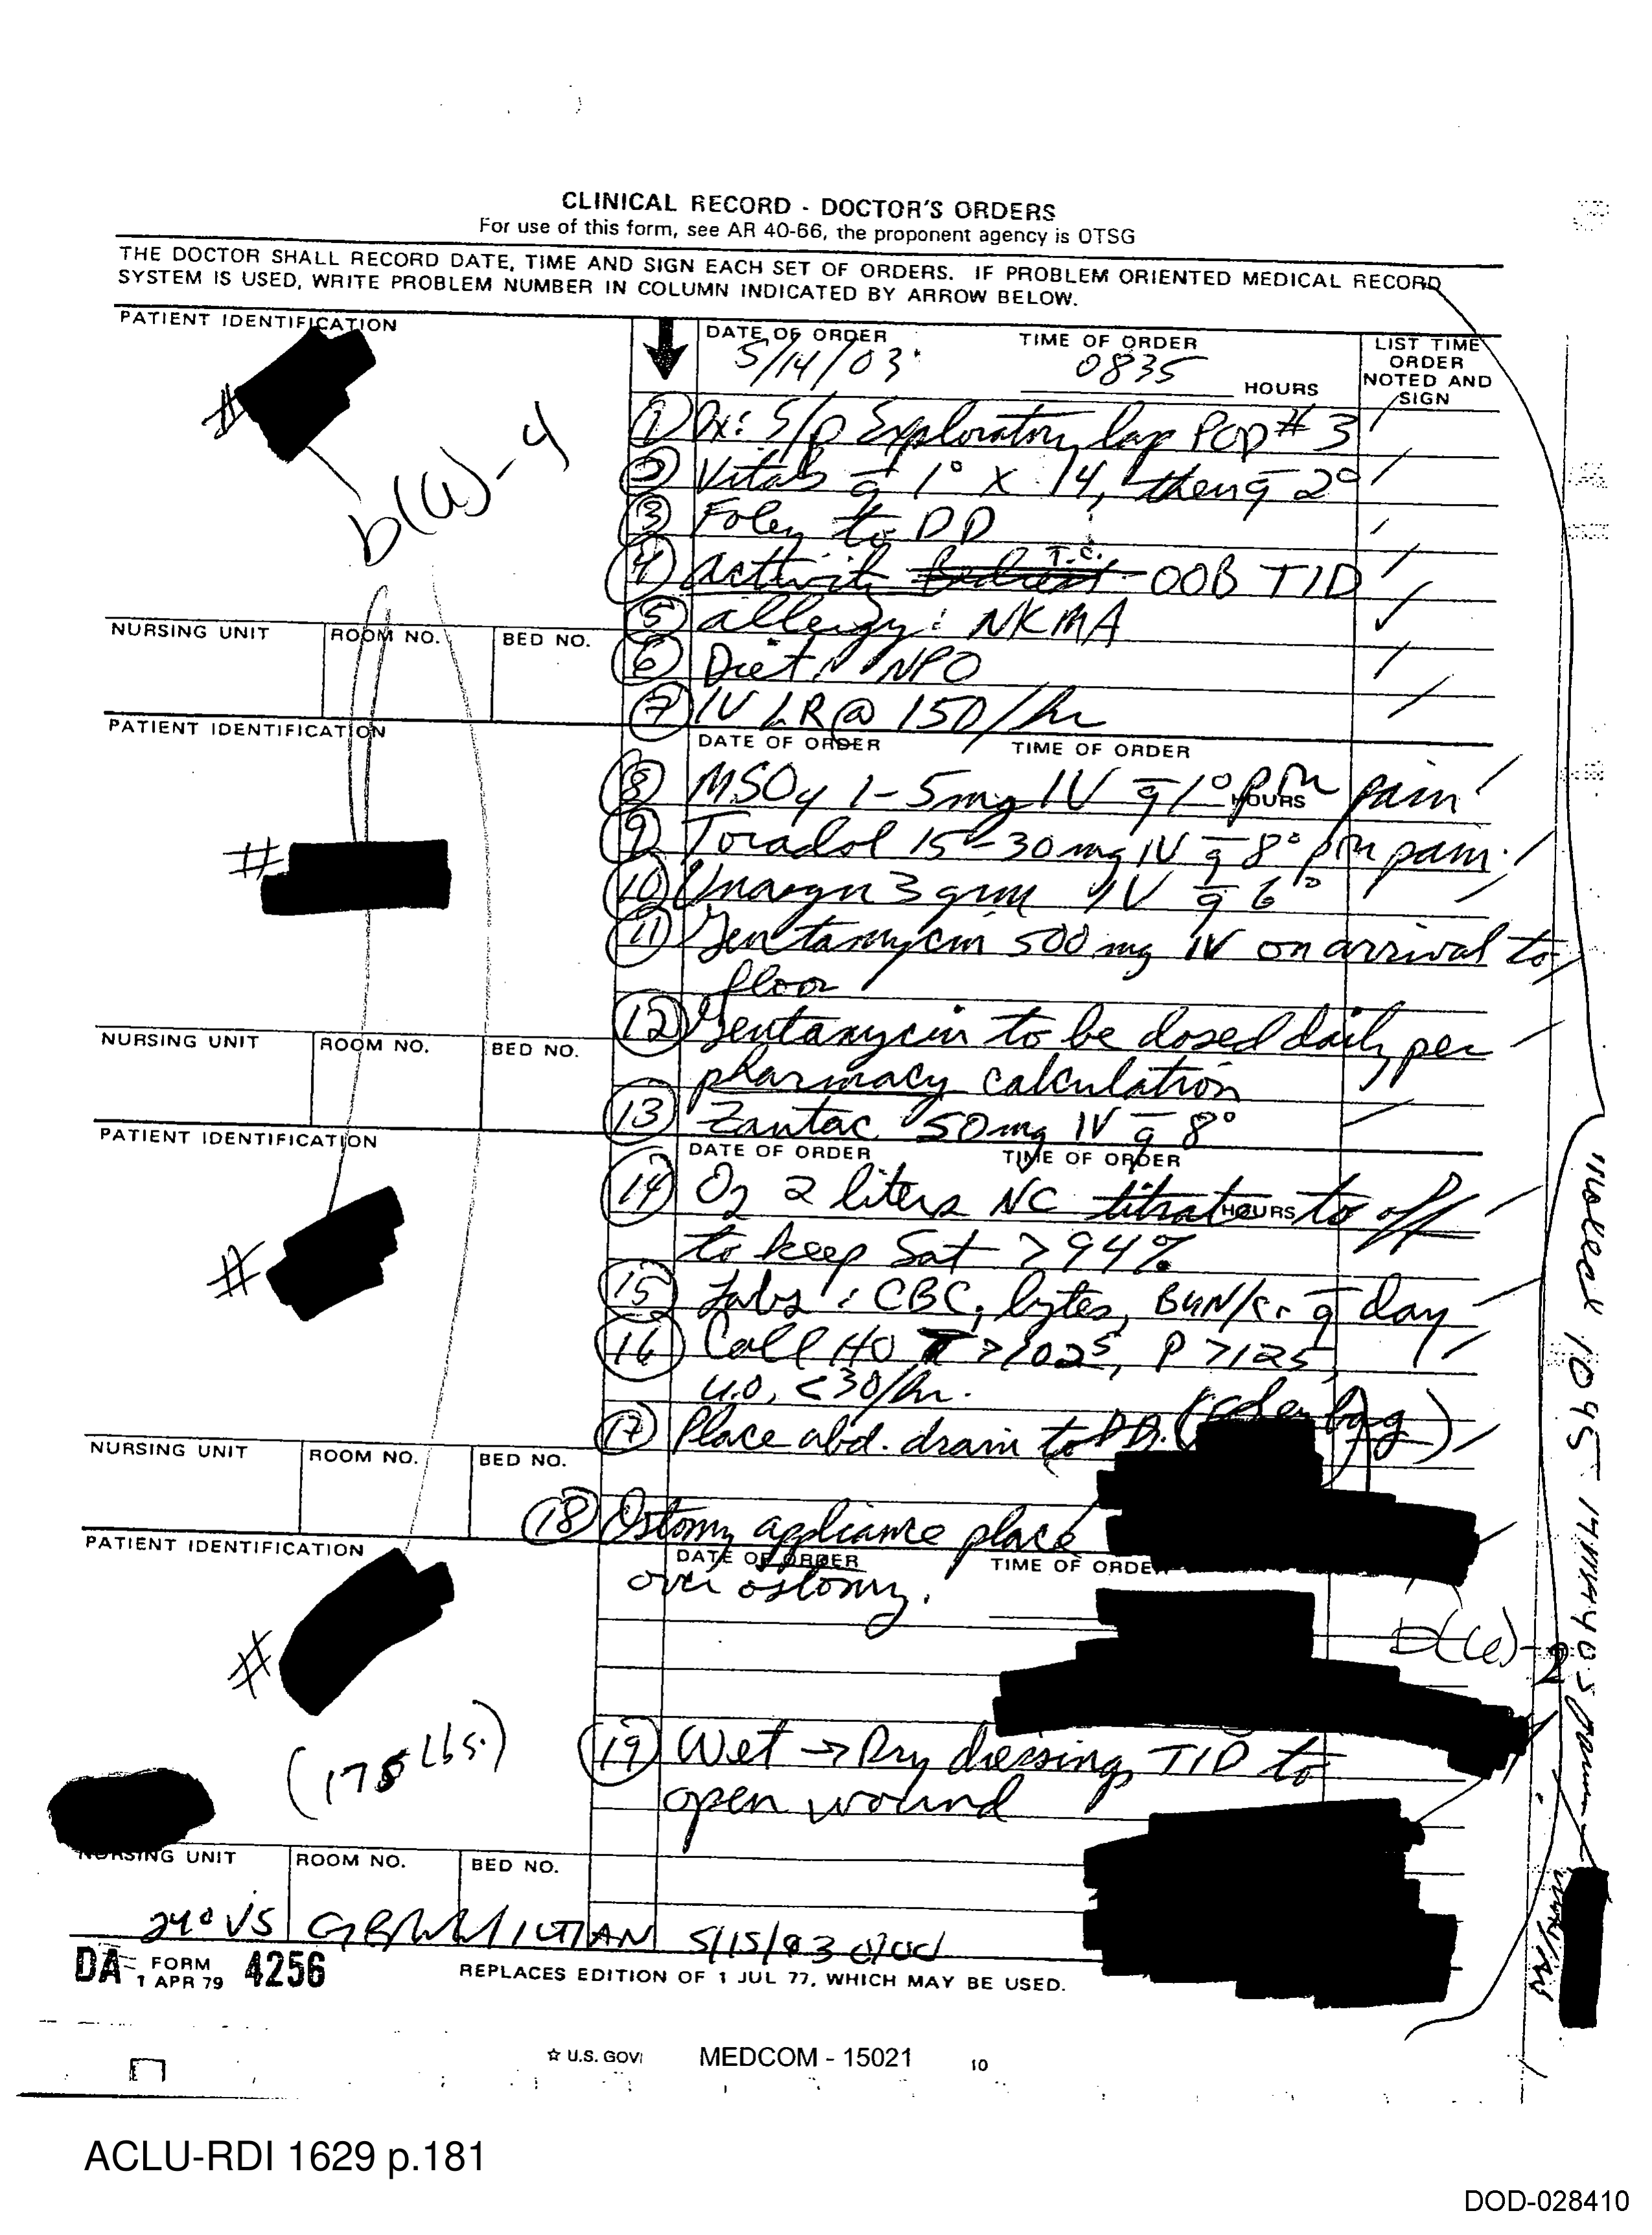 CLINICAL RECORD - DOCTOR'S ORDERS
For use of this form, see AR 40-66, the proponent agency is OTSG
THE DOCTOR SHALL RECORD DATE, TIME AND SIGN EACH SET OF ORDERS. IF PROBLEM ORIENTED MEDICAL RECORD
SYSTEM IS USED, WRITE PROBLEM NUMBER IN COLUMN INDICATED BY ARROW BELOW.
PATIENT IDENTIFICATION
#
b(6)-4
DATE OF ORDER
5/14/03
TIME OF ORDER
0835
HOURS
LIST TIME
ORDER
NOTED AND
SIGN
1 Dx: S/p Exploratory lap POD # 3
2 Vitals q 1° X 14, then q 2°
3 Foley to DD
4 Activity OOB TID
T.C.
5 allergy: NKMA
NURSING UNIT
ROOM NO.
BED NO.
6 Diet: NPO
7 IV LR @ 150/hr
PATIENT IDENTIFICATION
DATE OF ORDER
TIME OF ORDER
HOURS
8 MSO4 1-5mg IV q 1° prn pain
9 Toradol 15-30 mg IV q 8° prn pain.
#
10 Unasyn 3 grm IV q 6°
11 Gentamycin 500 mg IV on arrival to
floor
12 Gentamycin to be dosed daily per
pharmacy calculation
NURSING UNIT
ROOM NO.
BED NO.
13 Zantac 50mg IV q 8°
PATIENT IDENTIFICATION
DATE OF ORDER
TIME OF ORDER
HOURS
14 O2 2 liters NC titrate to off
to keep Sat > 94%
#
15 Labs: CBC, lytes, BUN/cr q day
16 Call HO T > 102⁵, P > 125,
u.o. < 30/hr.
17 Place abd. drain to DD. ( bag)
NURSING UNIT
ROOM NO.
BED NO.
18 Ostomy appliance place
PATIENT IDENTIFICATION
DATE OF ORDER
TIME OF ORDER
over ostomy.
#
b(6)-2
(175 lbs.)
19 Wet → Dry dressing TID to
open wound
NURSING UNIT
ROOM NO.
BED NO.
24° VS
5/15/03
DA FORM 4256
1 APR 79
REPLACES EDITION OF 1 JUL 77, WHICH MAY BE USED.
☆ U.S. GOV
MEDCOM - 15021
10
Noted 1045 14MAY03
ACLU-RDI 1629 p.181
DOD-028410